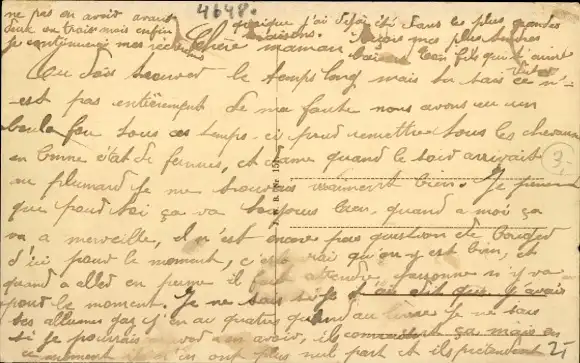 ne pas en avoir avant
deux ou trois mois enfin
je continuerai mes
4648.
quoique j'ai déjà été dans les plus grandes
maisons. Reçois mes plus tendres
baisers ton fils qui t'aime
Chère maman
Tu dois trouver le temps long mais tu sais ce n'
est pas entièrement de ma faute nous avons eu un
boulot fou tous ces temps-ci pour remettre tous les chevaux
en bonne état de ferrures, et dame quand le soir arrivait
au plumard je me trouvais vraiment bien. Je pense
que pour toi ça va toujours bien, quand a moi ça
va a merveille, il n'est encore pas question de bouger
d'ici pour le moment, c'est vrai qu'on y est bien, et
quand a aller en perme il faut attendre personne n'y va
pour le moment. Je ne sais si je t'ai dit que j'avais
tes allumes gaz j'en au quatre quand au je ne sais
si je pourrais en avoir, ils ça mais en
ce moment ils n'en ont plus nul part et ils prétendent
3-
2-